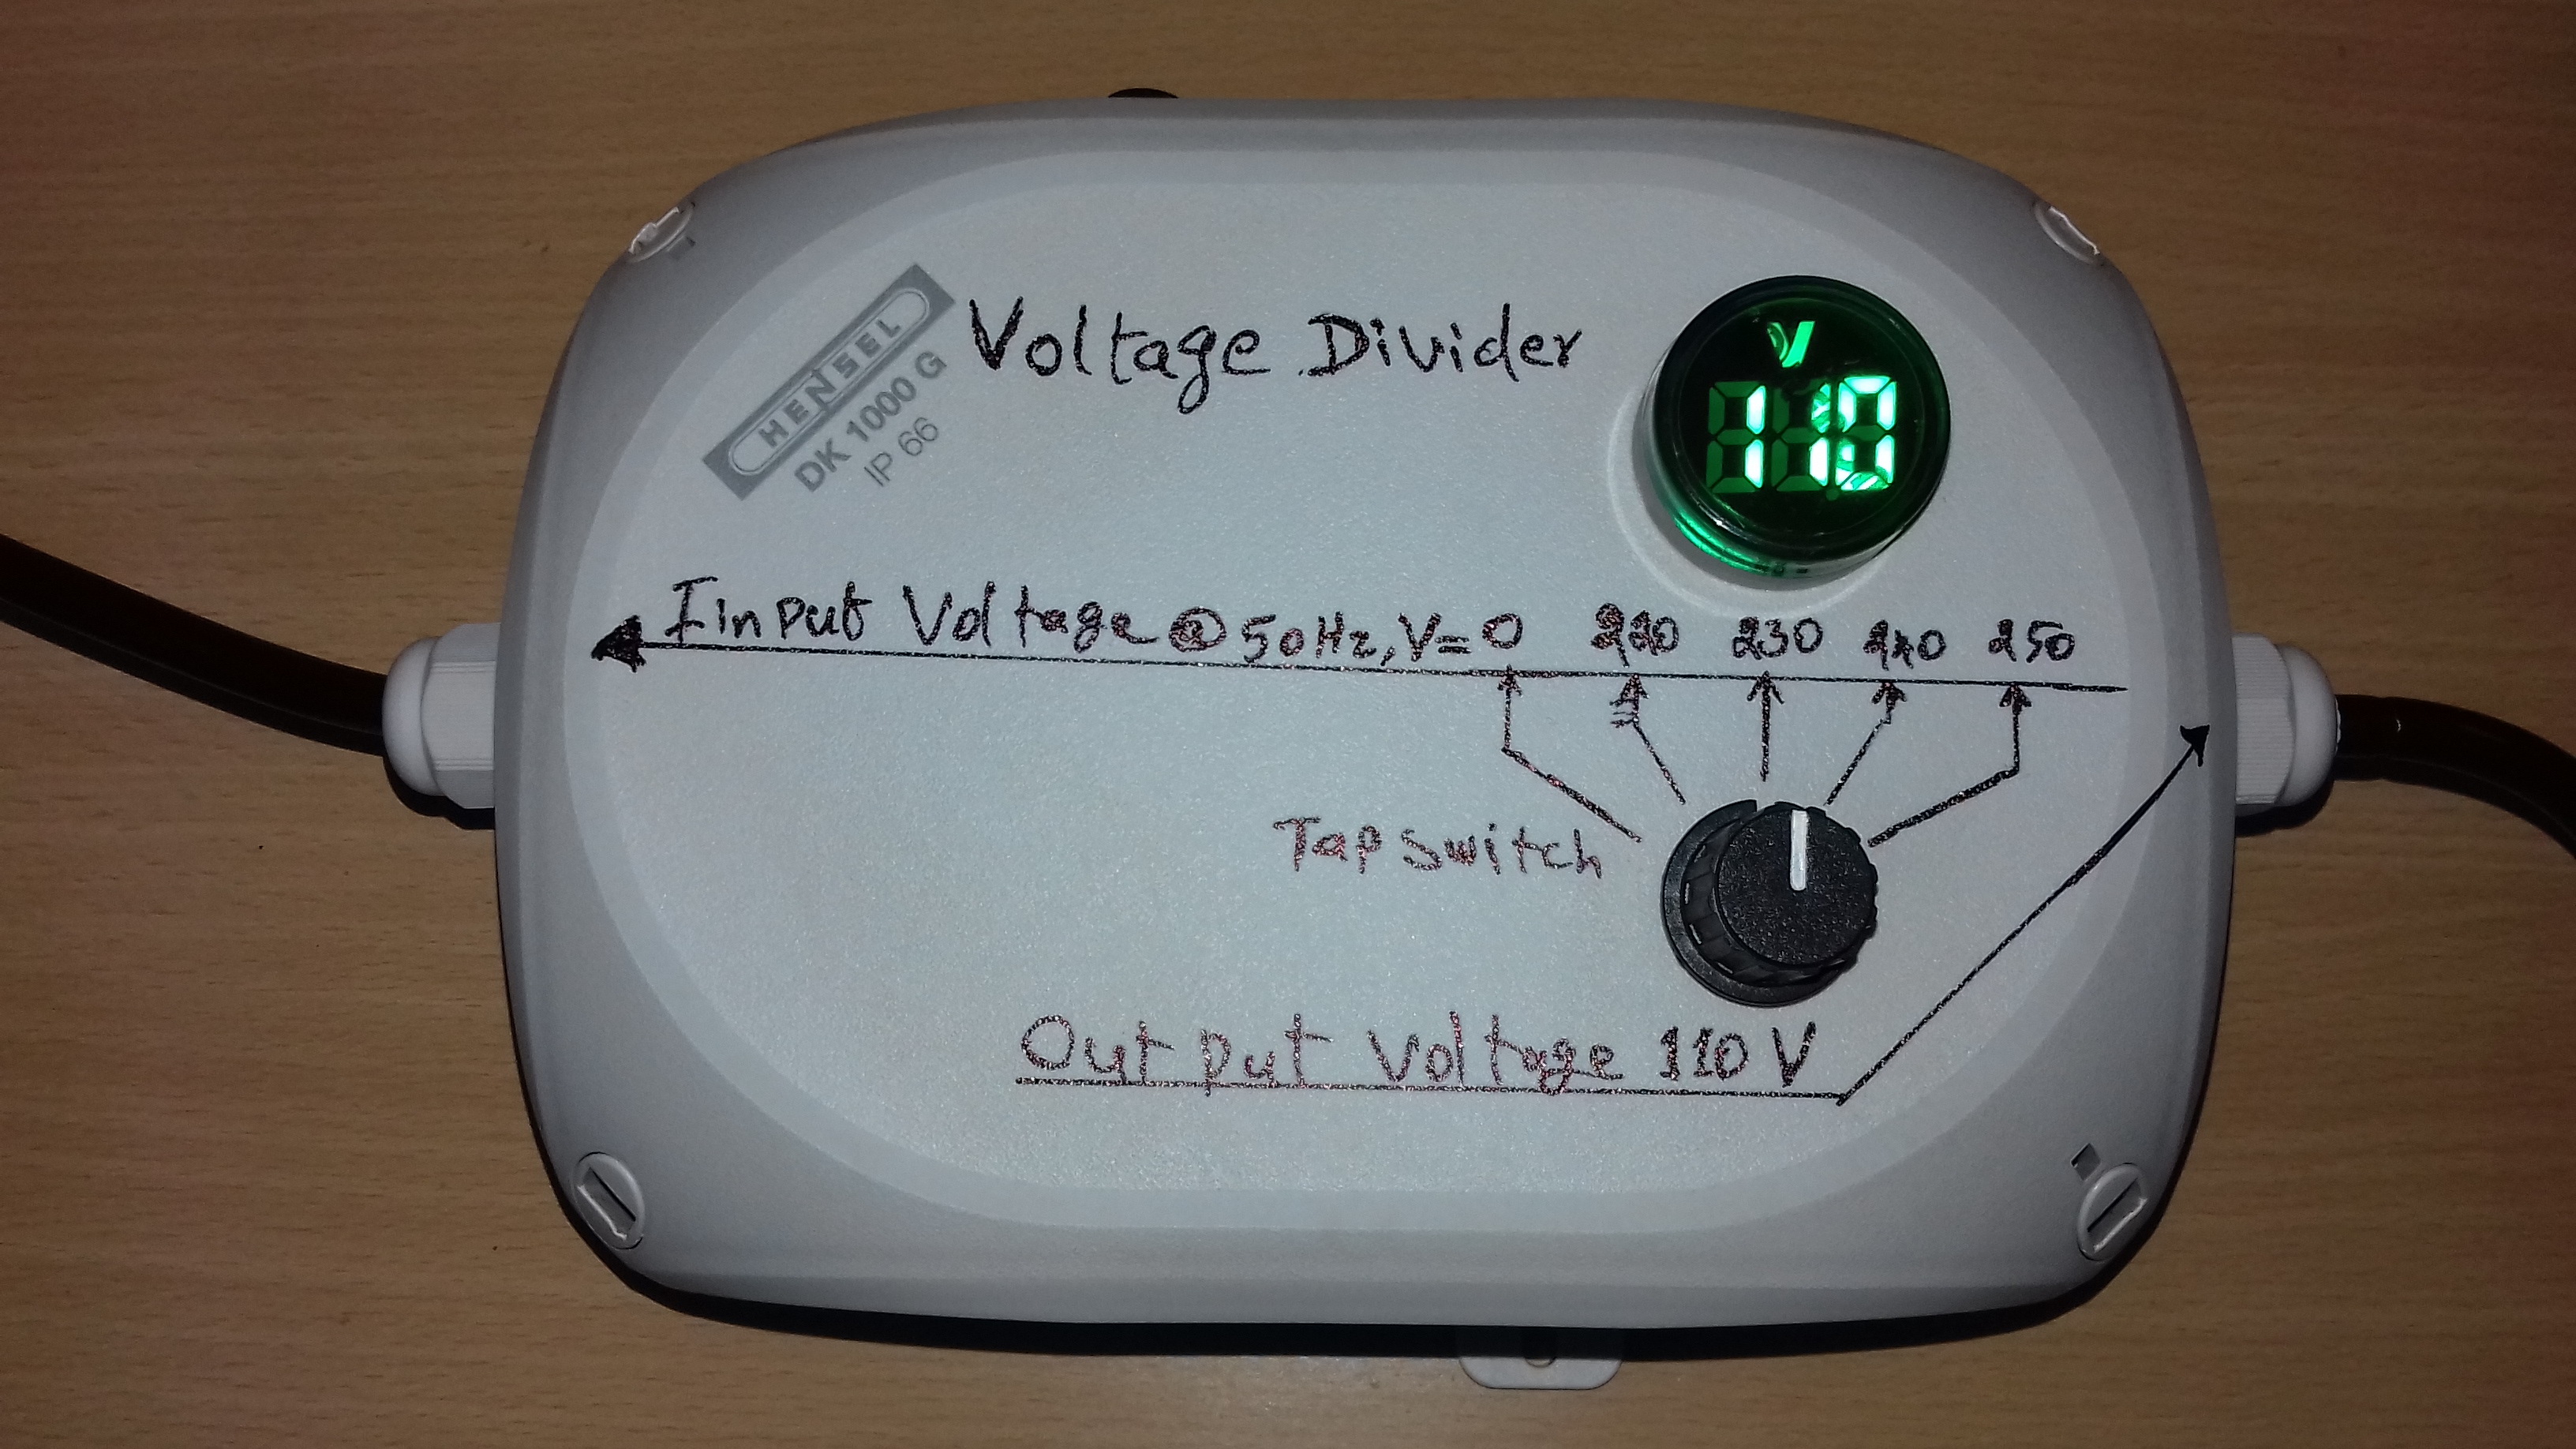 HENSEL
DK 1000 G
IP 66
Voltage Divider
V
110
Iinput Voltage @ 50Hz, V= 0 220 230 240 250
Tap Switch
Out put Voltage 110 V